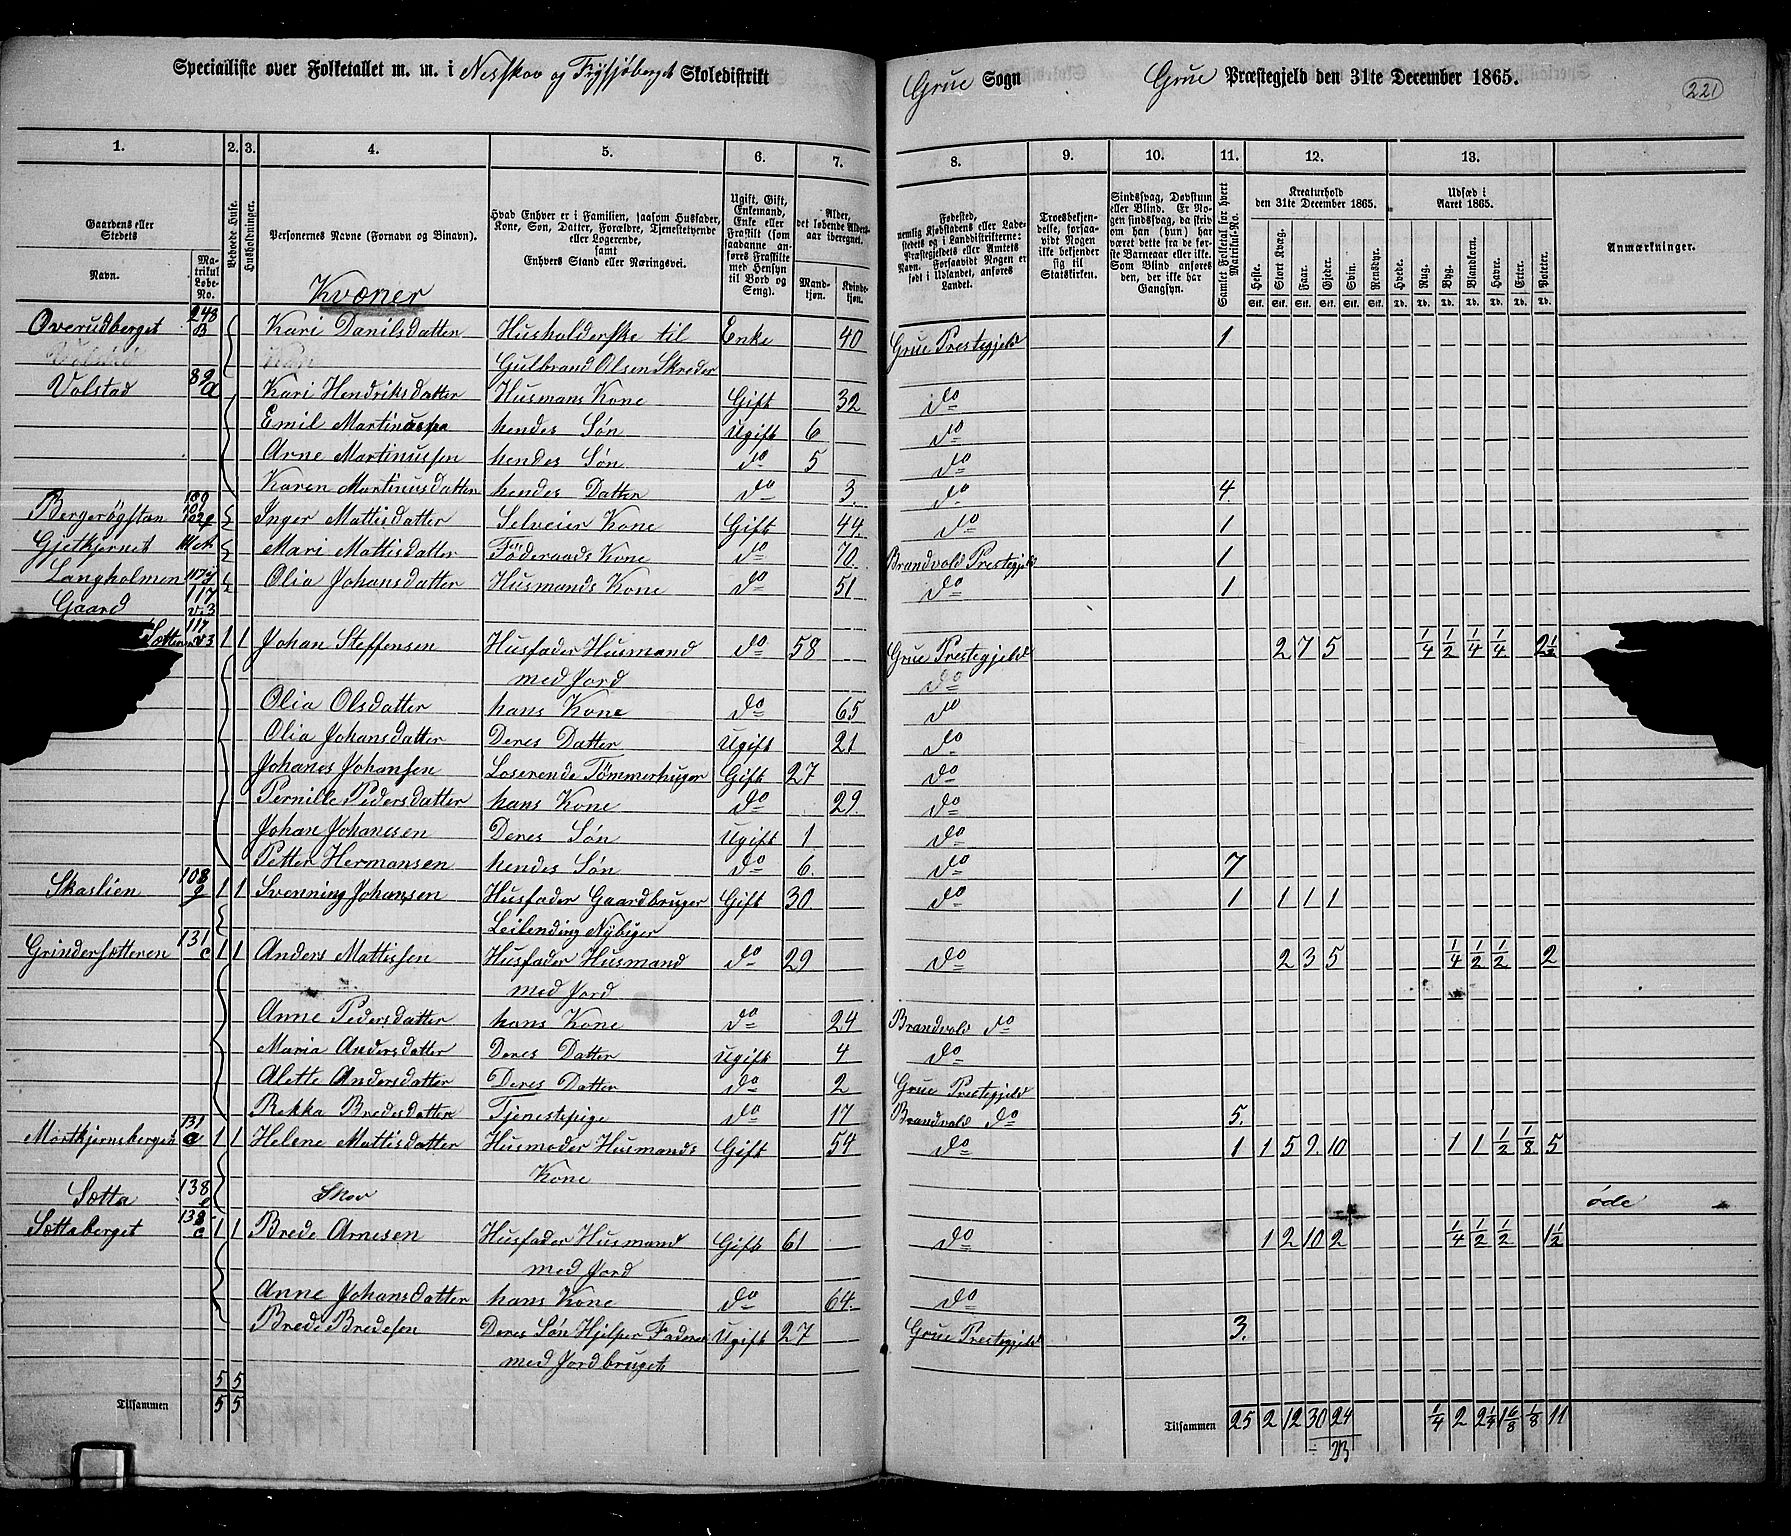 Specialliste over Folketallet m. m. i Nesskov og Frysjøberget Skoledistrikt
Grue Sogn Grue Præstegjeld den 31te December 1865.
221
1. 2. 3. 4. 5. 6. 7. 8. 9. 10. 11. 12. 13.
Gaardens eller Stedets
Navn.
Matrikul Løbe-No.
Beboede Huse.
Husholdninger.
Personernes Navne (Fornavn og Binavn).
Hvad Enhver er i Familien, saasom Husfader, Kone, Søn, Datter, Forældre, Tjenestetyende eller Logerende, samt Enhvers Stand eller Næringsvei.
Ugift, Gift, Enkemand, Enke eller Fraskilt (som saadanne anføres Fraskilte med Hensyn til Bord og Seng).
Alder, det løbende Aldersaar iberegnet.
Mandkjøn. Kvindekjøn.
Fødested, nemlig Kjøbstadens eller Ladestedets og i Landdistrikterne: Præstegjeldets eller Amtets Navn. Forsaavidt Nogen er født i Udlandet, anføres Landet.
Troesbekjendelse, forsaavidt Nogen ikke bekjender sig til Statskirken.
Sindssvag, Døvstum eller Blind. Er Nogen sindssvag, da skrives om han (hun) har været dette fra de første Barneaar eller ikke. Som Blind anføres den, der ikke har Gangsyn.
Samlet Folketal for hvert Matrikul-No.
Kreaturhold den 31te December 1865.
Heste. Stort Kvæg. Faar. Gjeder. Sviin. Rensdyr.
Stk. Stk. Stk. Stk. Stk. Stk.
Udsæd i Aaret 1865.
Hvede. Rug. Byg. Blandkorn. Havre. Erter. Poteter.
Td. Td. Td. Td. Td. Td. Td.
Anmærkninger.
Kvæner
Overudberget 243 B Kari Danilsdatter Husholderske til Enke 40 Grue Prestegjeld 1
Gulbrand Olsen Skreder
Volstad 89 a Kari Hendriksdatter Husmans Kone Gift 32 do
Emil Martinussen hendes Søn Ugift 6 do
Arne Martinussen hendes Søn do 5 do
Karen Martinusdatter hendes Datter do 3 do 4
Bergerøgstan Inger Mattisdatter Selveier Kone Gift 44 do 1
Gjetkjernet Mari Mattisdatter Føderaads Kone do 70 Brandvold Prestegjeld 1
Langholmen 117 Olia Johansdatter Husmands Kone do 51 do 1
Gaard 117 v. 3
Sætteren 117 v 3 1 1 Johan Steffensen Husfader Husmand do 58 Grue Prestegjeld 2 7 5 1/4 1/2 1/4 1/4 2 1/2
med Jord do
Olia Olsdatter hans Kone do 65 do
Olia Johansdatter Deres Datter Ugift 21 do
Johanes Johansen Loserende Tømmerhuger Gift 27 do
Pernille Pedersdatter hans Kone do 29 do
Johan Johanesen Deres Søn Ugift 1 do
Petter Hermansen hendes Søn do 6 do 7
Skaslien 108 g 1 1 Svenning Johansen Husfader Gaardbruger Gift 30 do 1 1 1 1
Leilending Nybiger
Grindersætteren 131 c 1 1 Anders Mattissen Husfader Husmand do 29 do 2 3 5 1/4 1/2 1/2 2
med Jord
Anne Pedersdatter hans Kone do 24 Brandvold do
Maria Andersdatter Deres Datter Ugift 4 do
Alette Andersdatter Deres Datter do 2 Grue Prestegjeld
Rekka Bredesdatter Tjenestepige do 17 Brandvold do 5
Mørtkjernsberget 131 a 1 1 Helene Mattisdatter Husmoder Husmands Gift 54 do 1 1 5 2 10 1 1 1/2 1/8 5
Kone
Sætta 138 Skov øde
Sættaberget 138 c 1 1 Brede Arnesen Husfader Husmand Gift 61 do 1 2 10 2 1/4 1/2 1/2 1 1/2
med Jord
Anne Johansdatter hans Kone do 64 do
Brede Bredesen Deres Søn Hjelper Faderen Ugift 27 Grue Prestegjeld 3
med Jordbruget
5 5
Tilsammen 5 5 Tilsammen 25 2 12 30 24 1/4 2 2 1/4 1 6/8 1/8 11
23